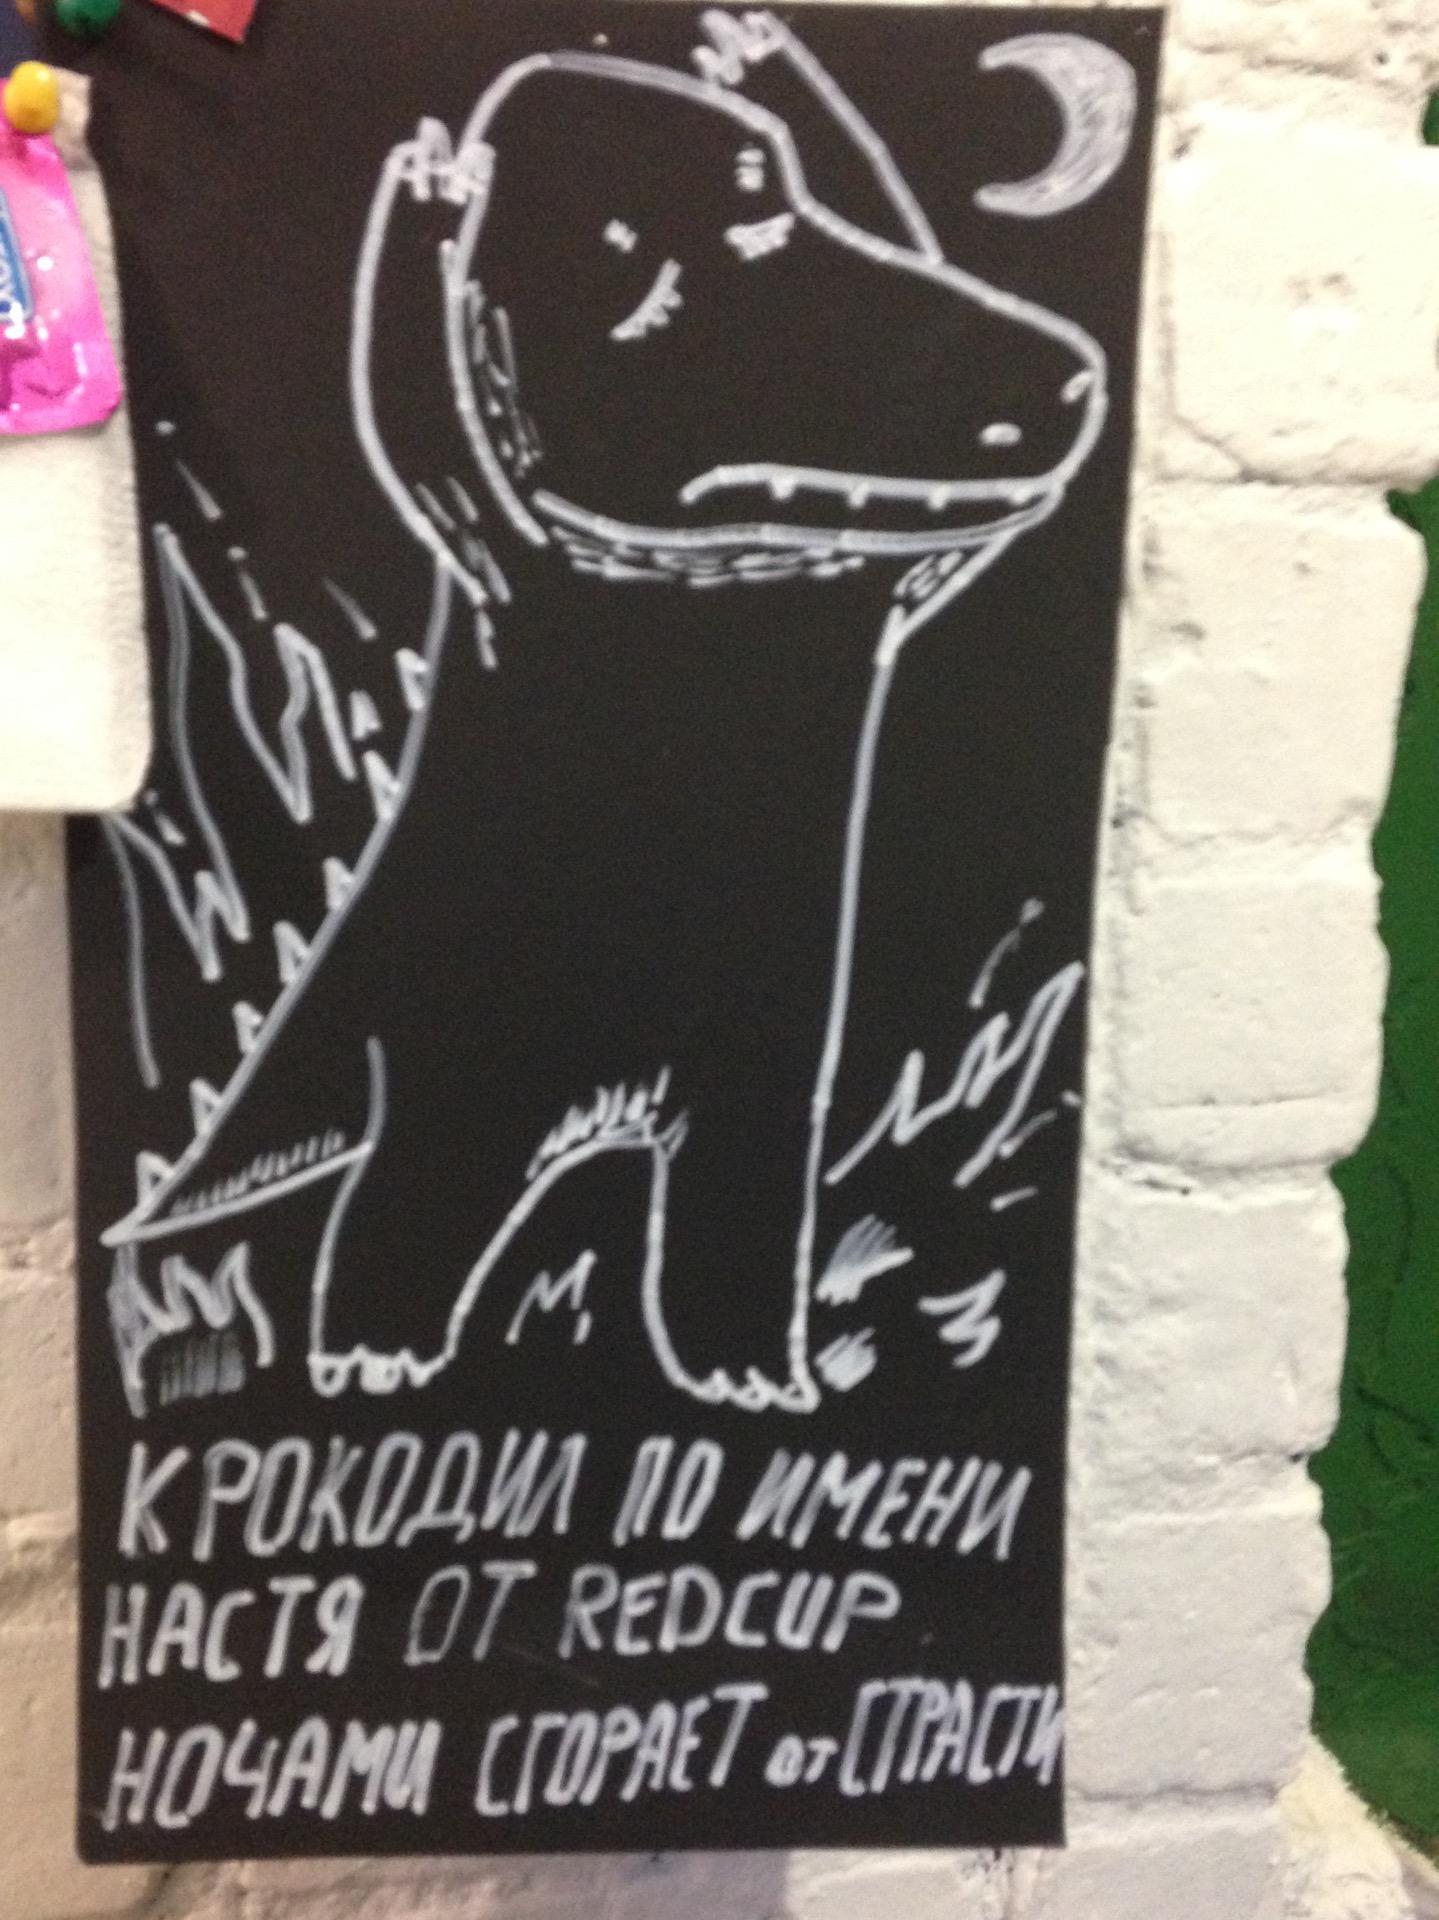 КРОКОДИЛ ПО ИМЕНИ
НАСТЯ ОТ REDCUP
НОЧАМИ СГОРАЕТ от СТРАСТИ